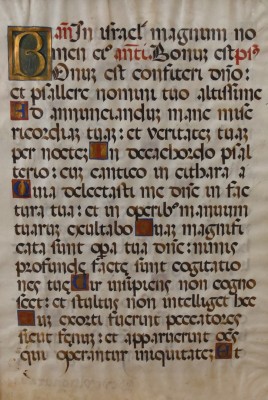 añ. In israel magnum no
men eius. añti. Bonum est ps
Bonum est confiteri dño:
et psallere nomini tuo altissime
Ad annunciandum mane misericordiam
tuam: et veritatem tuam
per noctem In decachordo psal
terio: cum cantico in cithara
Quia delectasti me dñe in fac
tura tua: et in operibus manuum
tuarum exultabo Quam magnifi
cata sunt opa tua dñe: nimis
profunde facte sunt cogitatio
nes tue Vir insipiens non cogno
scet: et stultus non intelliget hec
Cum exorti fuerint peccatores
sicut fenum: et apparuerint oēs
qui operantur iniquitatem Ut